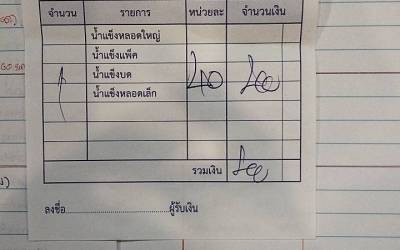 จำนวน รายการ หน่วยละ จำนวนเงิน
น้ำแข็งหลอดใหญ่
น้ำแข็งแพ็ค
1 น้ำแข็งบด 40
น้ำแข็งหลอดเล็ก
รวมเงิน
ลงชื่อ............................ผู้รับเงิน